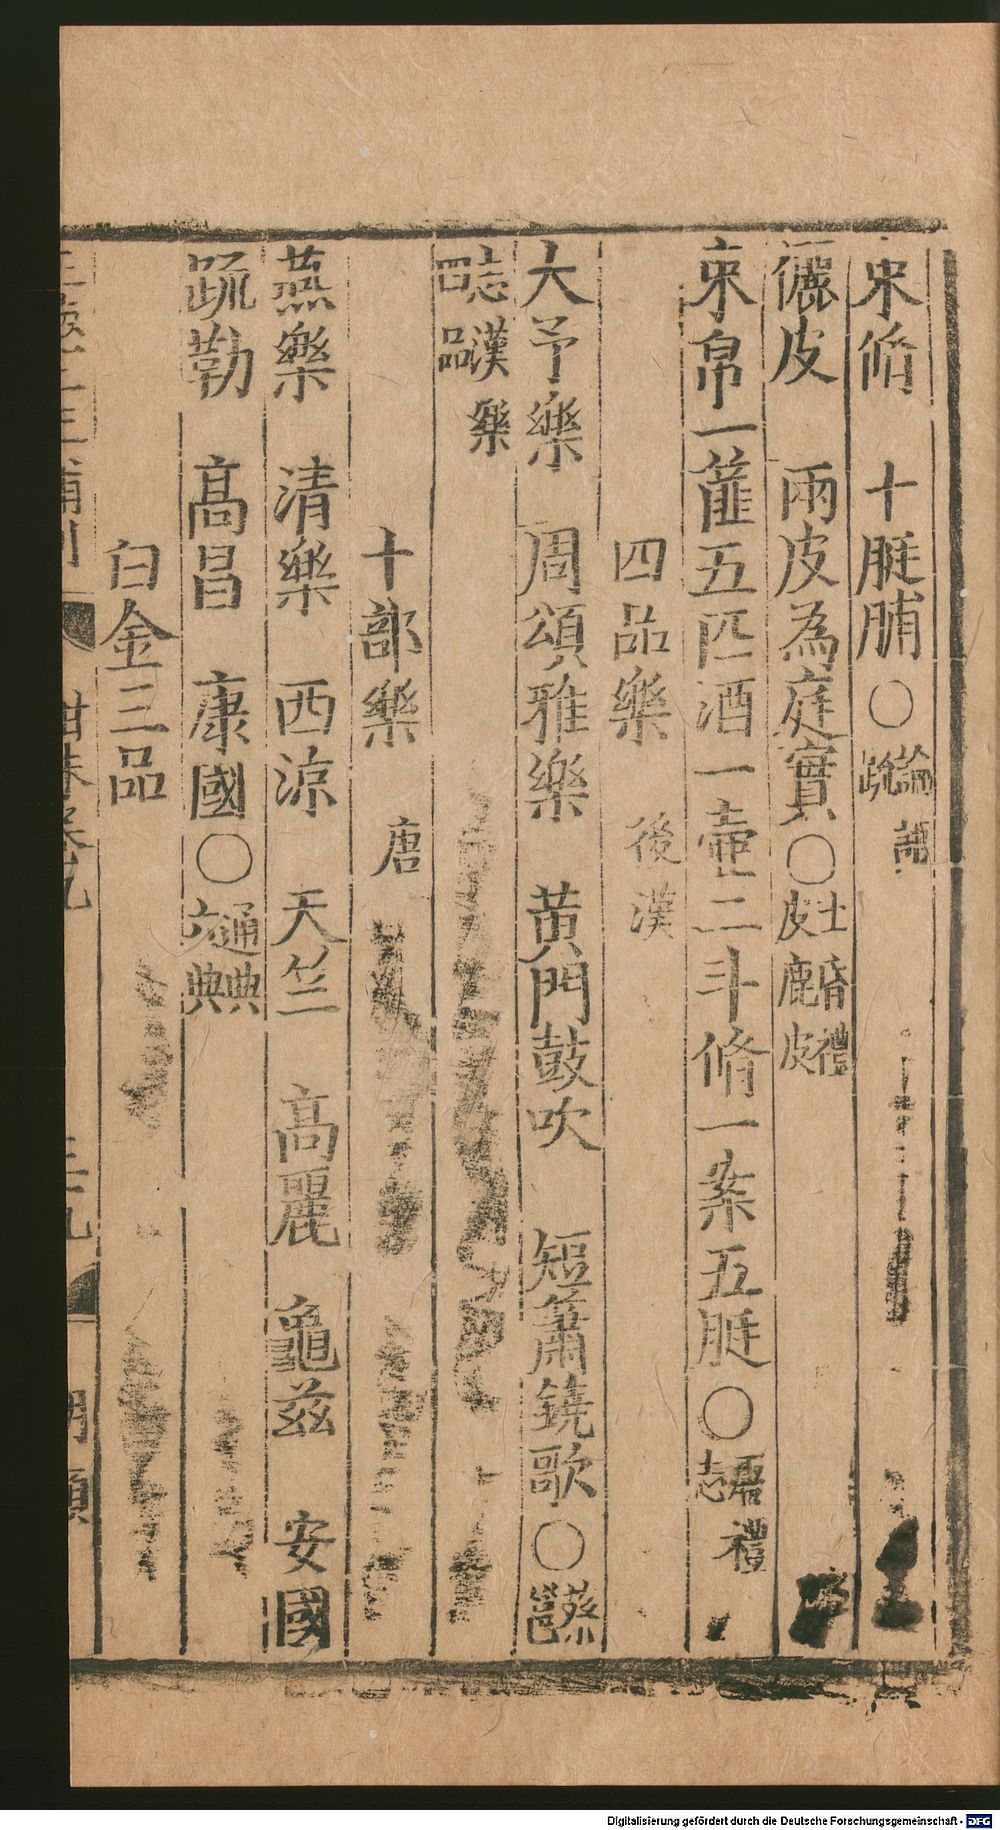 束脩　十脡脯〇論語疏
儷皮　兩皮為庭實〇士昏禮皮鹿皮
束帛一篚五匹酒一壷二斗脩一案五脡〇唐禮志
四品樂　後漢
大予樂　周頌雅樂　黄門鼓吹　短簫鐃歌〇蔡邕
志漢樂四品
十部樂　唐
燕樂　清樂　西凉　天竺　高麗　龜兹　安國
疏勒　高昌　康國〇通典六典
白金三品
Digitalisierung gefördert durch die Deutsche Forschungsgemeinschaft - DFG